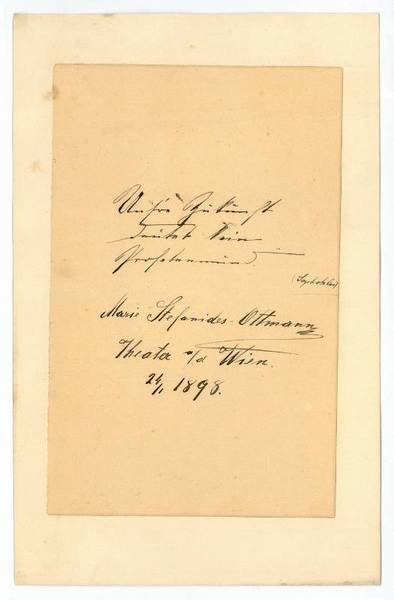 Unsre Zukunft
deutet kein
Profetenmund.
(Sophokles)
Marie Stefanides-Ottmann
Theater a/d Wien.
24/1 1898.